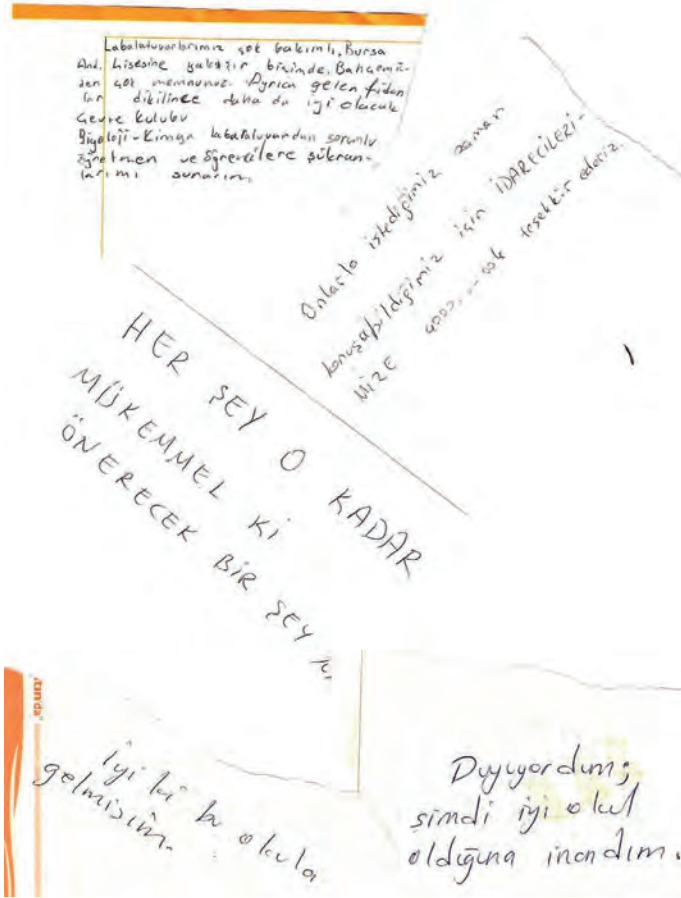 Labalatuvarlarımız çok bakımlı, Bursa
And. Lisesine yakışır biçimde. Bahçemiz-
den çok memnunuz. Ayrıca gelen fidan
lar dikilince daha da iyi olacak
Çevre kulübü
Biyoloji-Kimya labalatuvardan sorunlu
öğretmen ve öğrencilere şükran-
larımı sunarım.
Onlarla istediğimiz zaman
konuşabildiğimiz için İDARECİLERİ-
MİZE çok teşekkür ederiz.
HER ŞEY O KADAR
MÜKEMMEL Kİ
ÖNERECEK BİR ŞEY
İyi ki bu okula
gelmişim.
Duyuyordum;
şimdi iyi okul
olduğuna inandım.